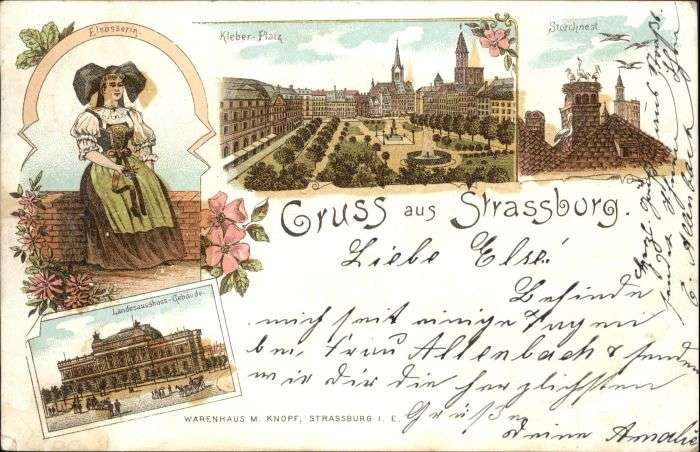 Elsässerin.
Kleber-Platz
Storchnest
Gruss aus Strassburg.
Landesausshuss-Gebäude.
Liebe Else!
Befinde
mich seit einige Tagen
bei Frau Allenbach & senden
wir dir die herzlichsten
Grüße
Deine Amalie
WARENHAUS M. KNOPF, STRASSBURG I. E.